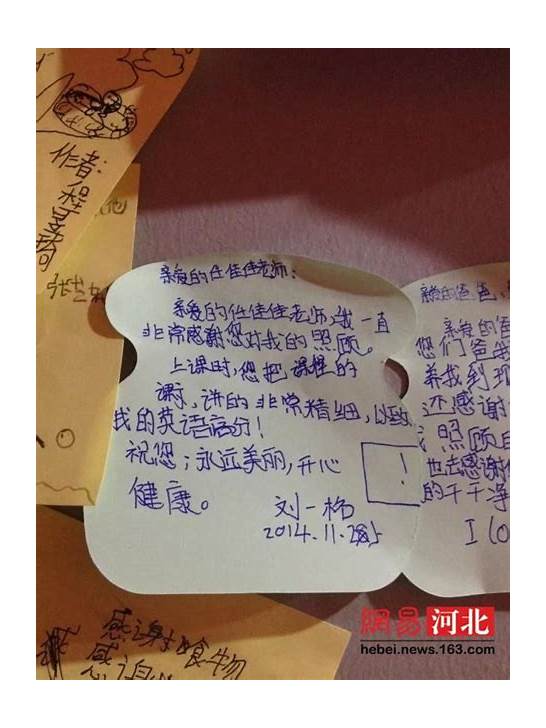 作者:
程
感谢食物
感谢
亲爱的任佳佳老师:
亲爱的任佳佳老师,我一直
非常感谢您对我的照顾。
上课时,您把课程的
讲的非常精细,以致
我的英语高分!
祝您;永远美丽,开心
健康。
刘一格
2014.11.
亲爱的爸爸
亲爱的爸
您们爸我
养我到现
还感谢
照顾
也去感谢
的干干净
I
網易河北
hebei.news.163.com